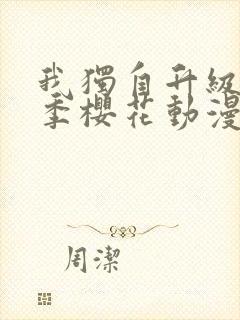 我獨自升級
季櫻花動漫
周潔